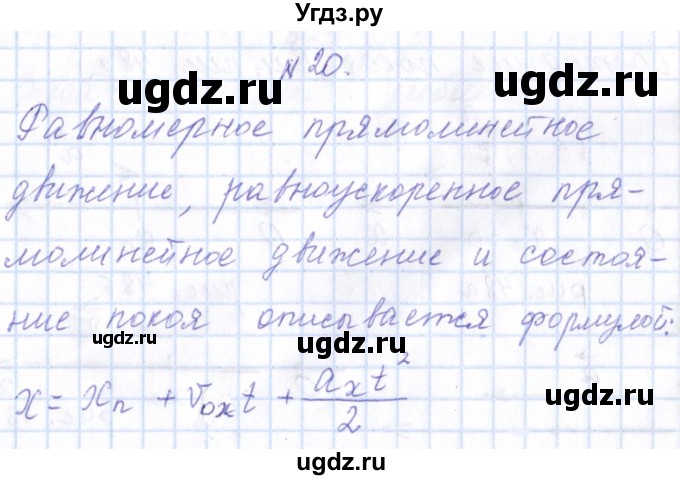 Угдз.ру
№ 20.
ugdz.ru ugdz.ru
Равномерное прямолинейное
движение, равноускоренное пря-
молинейное движение и состоя-
ние покоя описывается формулой:
ugdz.ru ugdz.ru
x = xп + v₀ₓt + aₓt²/2
ugdz.ru ugdz.ru
ugdz.ru